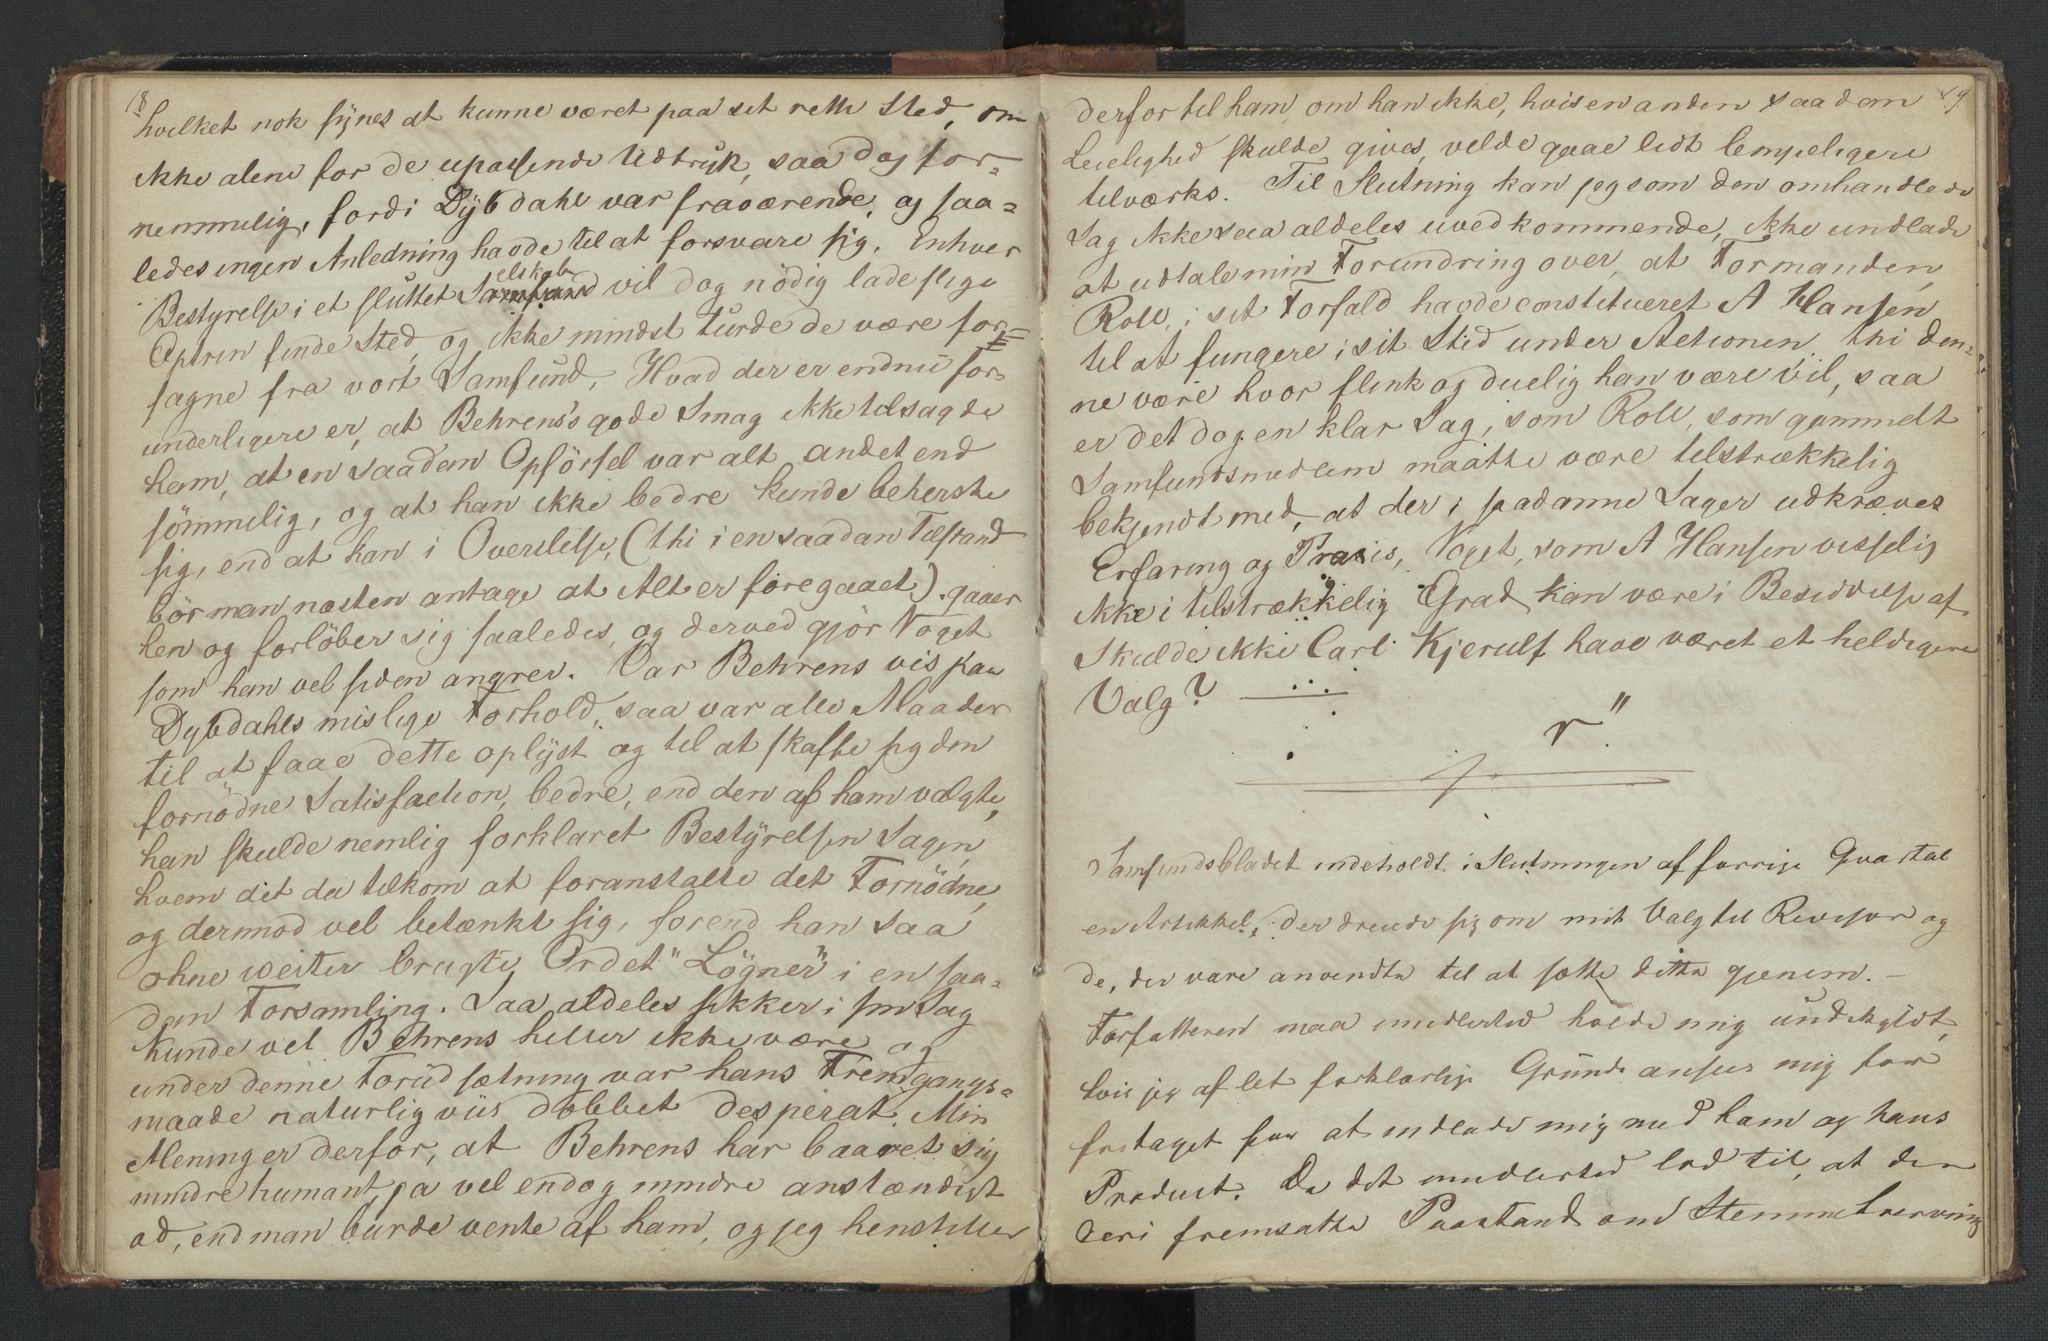 18
hvilket nok synes at kunne været paa sit rette Sted, om
ikke alene for de upassende Udtryk, saa dog for-
nemmelig, fordi Dybdahl var fraværende, og saa-
ledes ingen Anledning havde til at forsvare sig. Enhver
Bestyrelse i et sluttet Selskab vil dog nödig lade slige
Optrin finde Sted, og ikke mindst turde de være for-
sagne fra vort Samfund. Hvad der er endnu for-
underligere er, at Behrens's gode Smag ikke tilsagde
ham, at en saadan Opförsel var alt andet end
sömmelig, og at han ikke bedre kunde beherske
sig, end at han i Overilelse, (thi i en saadan Tilstand
bör man næsten antage at Alt er foregaaet). gaaer
hen og forlöber sig saaledes, og derved gjör Noget
som han vel siden angrer. Var Behrens vis paa
Dybdahls mislige Forhold, saa var alle Maader
til at faae dette oplyst og til at skaffe sig den
fornödne Satisfaction, bedre, end den af ham valgte,
han skulde nemlig forklaret Bestyrelsen Sagen,
hvem det da tilkom at foranstalte det Fornödne,
og dermod vel betænkt sig, forend han saa
ohne weiter brugte Ordet "Lögner" i en saa-
dan Forsamling. Saa aldeles sikker i sin Sag
kunde vel Behrens heller ikke være, og
under denne Forudsætning var hans Fremgangs-
maade naturligviis dobbet desperat. Min
Mening er derfor, at Behrens har baaret sig
mindre humant, ja vel endog mindre anstændigt
ad, end man burde vente af ham, og jeg henstiller
19
derfor til ham, om han ikke, hvis en anden saadan
Leielighed skulde gives, vilde gaae lidt lempeligere
tilværks. Til Slutning kan jeg som den omhandlede
Sag ikke saa aldeles uvedkommende, ikke undlade
at udtale min Forundring over, at Formanden,
Roll, i sit Forfald havde constitueret A Hansen
til at fungere i sit Sted under Actionen, thi den-
ne være hvor flink og duelig han være vil, saa
er det dog en klar Sag, som Roll, som gammelt
Samfundsmedlem maatte være tilstrækkelig
bekjendt med, at der i saadanne Sager udkræves
Erfaring og Praxis, Noget, som A Hansen visselig
ikke i tilstrækkelig Grad kan være i Besiddelse af
Skulde ikke Carl Kjerulf have været et heldigere
Valg?
r"
Samfundsbladet indeholdt i Slutningen af forrige Quartal
en Artikkel, der dreiede sig om mit Valg til Revisor og
de, der vare anvendte til at sætte dette gjenem. –
Forfatteren maa imidlertid holde mig undskyldt,
hvis jeg af let forklarlige Grunde anseer mig for
fritaget for at indlade mig med ham og hans
Product. Da det imidlertid lod til, at den
deri fremsatte Paastand om Stemmehverving